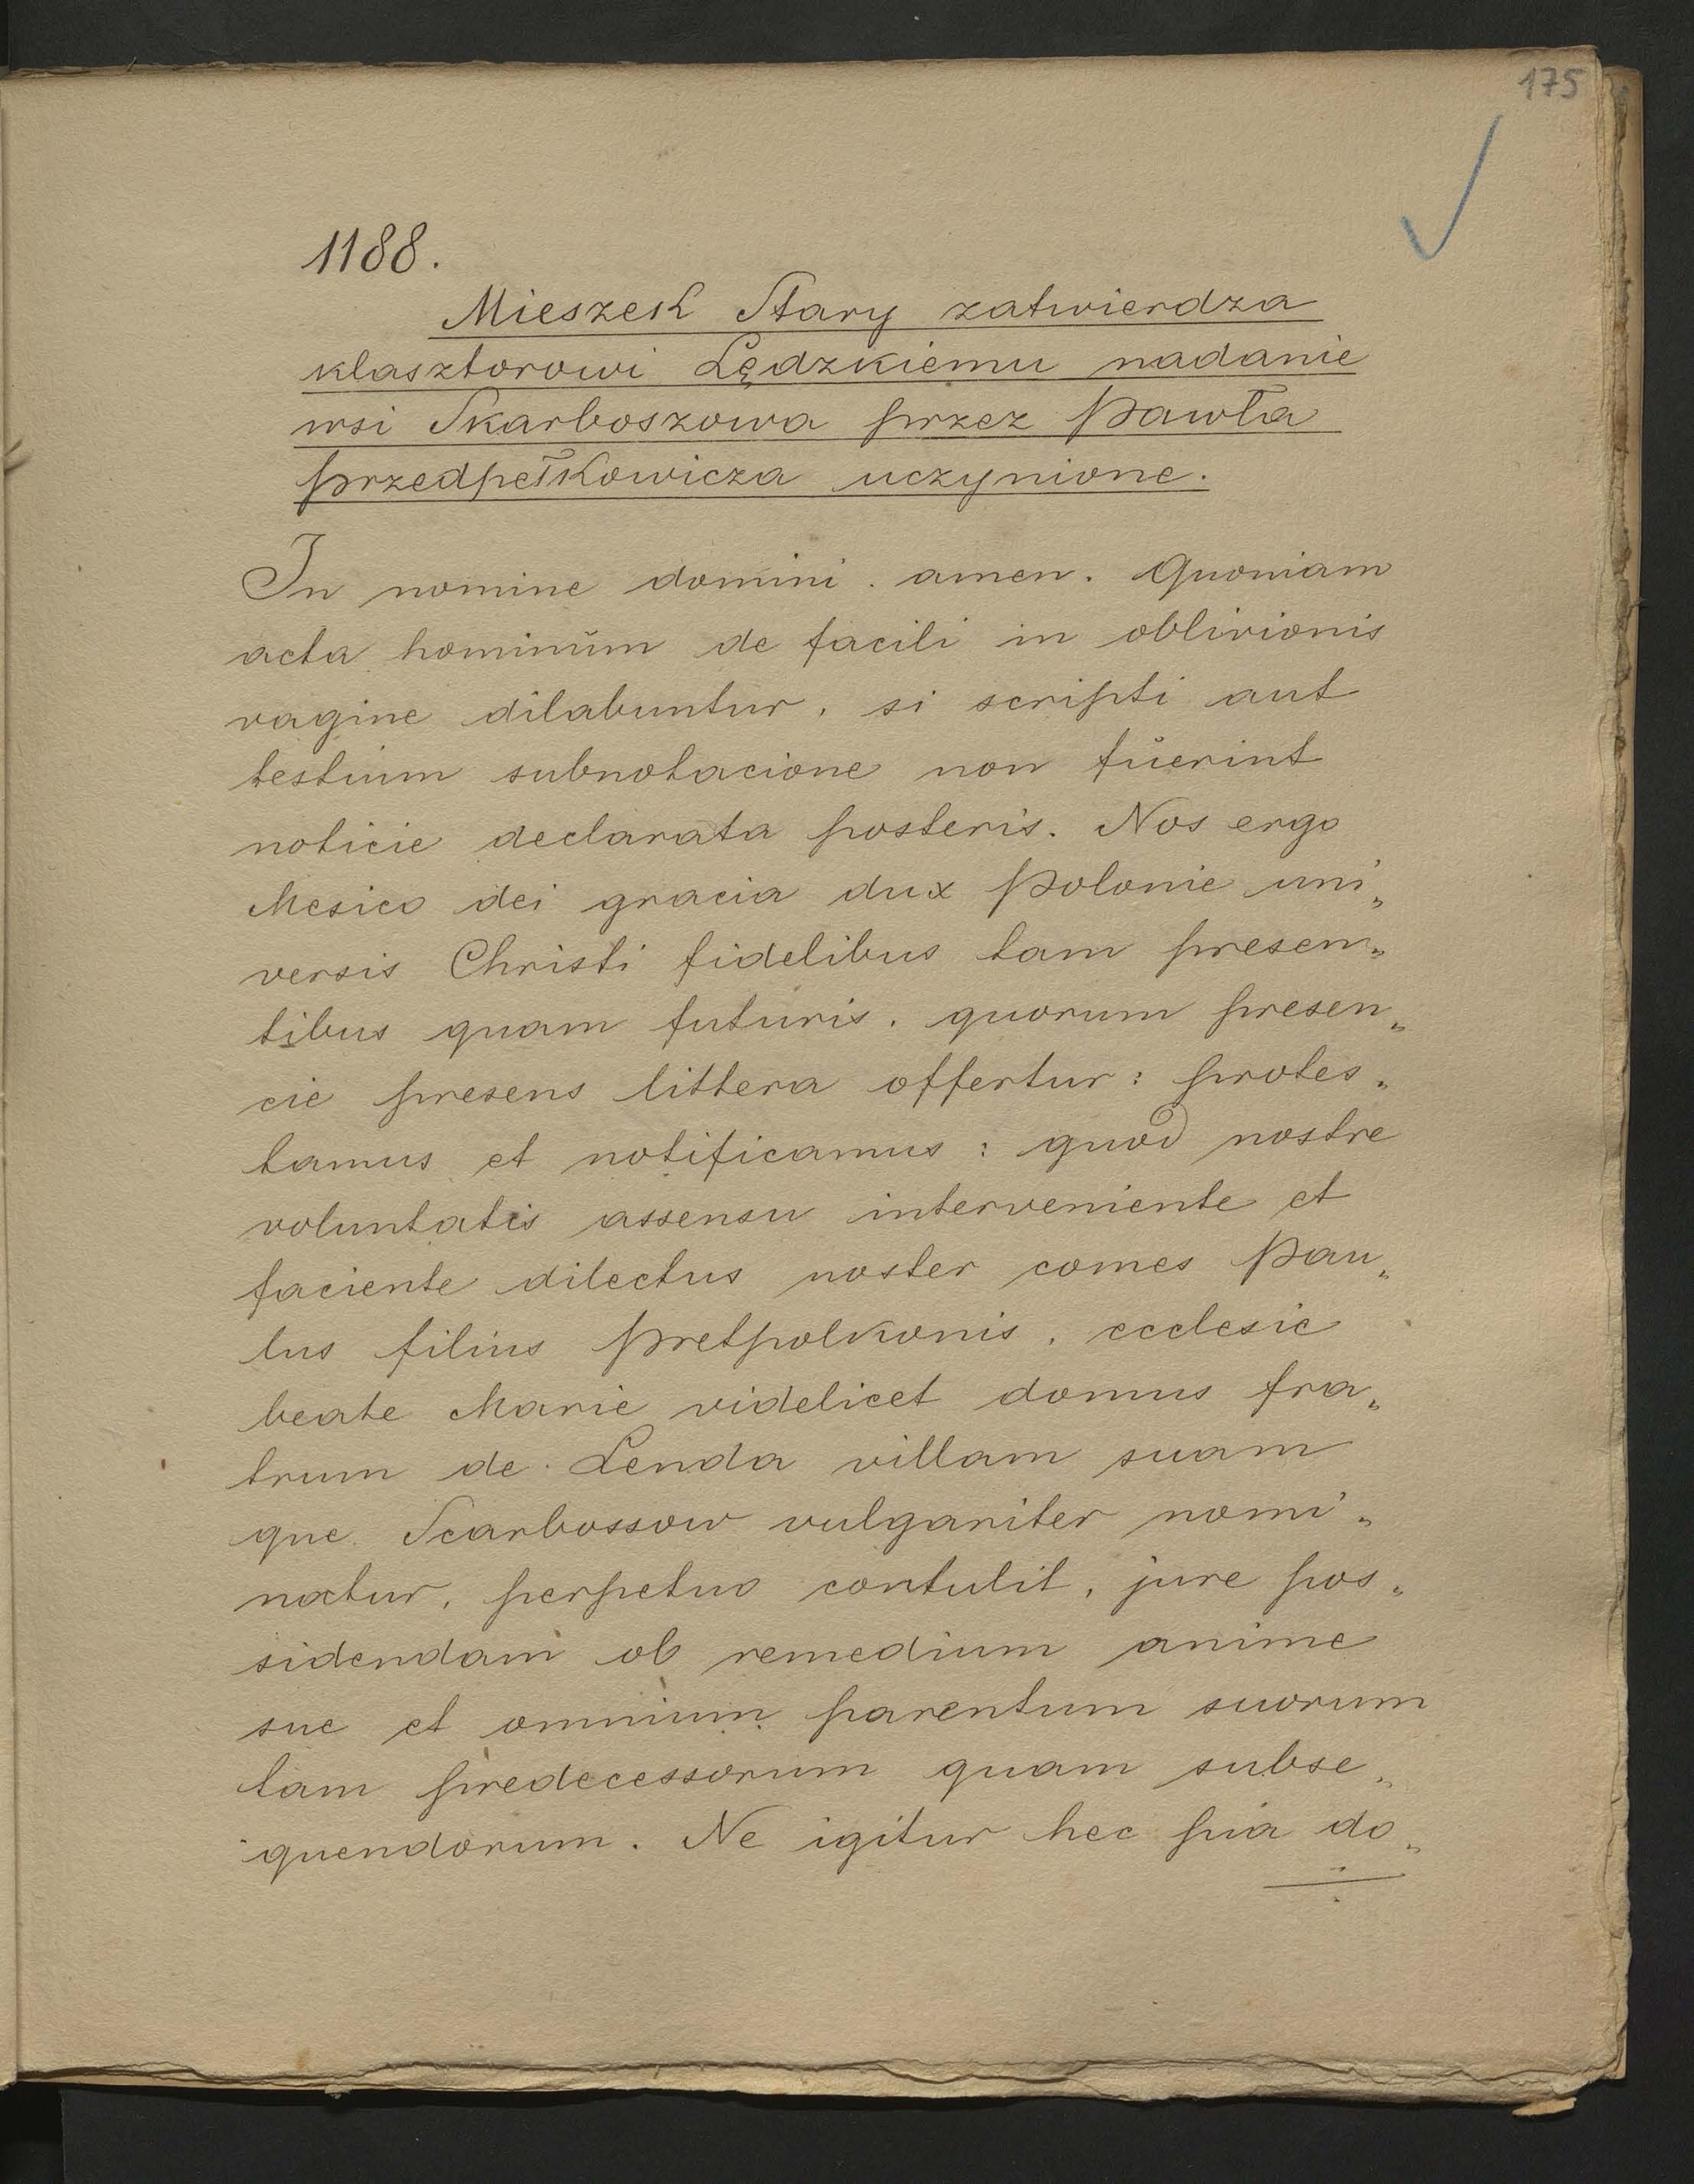 175
1188.
Mieszek Stary zatwierdza
klasztorowi Lędzkiemu nadanie
wsi Skarboszowa przez Pawła
Przedpełkowicza uczynione.
In nomine domini. amen. Quoniam
acta hominŭm de facili in oblivionis
vagine dilabuntur, si scripti aut
testium subnotacione non fůerint
noticie declarata posteris. Nos ergo
Mesico dei gracia dux Polonie uni„
versis Christi fidelibus tam presen„
tibus quam futuris, quorum presen„
cie presens littera offertur: protes„
tamus et notificamus: quod nostre
voluntatis assensu interveniente et
faciente dilectus noster comes Pau„
lus filius Pretpolkonis, ecclesie
beate Marie videlicet domus fra„
trum de Lenda villam suam
que Scarbossow vulgariter nomi„
natur, perpetuo contulit, jure pos„
sidendam ob remedium anime
sue et omnium parentum suorum
tam predecessorum quam subse„
quendorum. Ne igitur hec pia do„